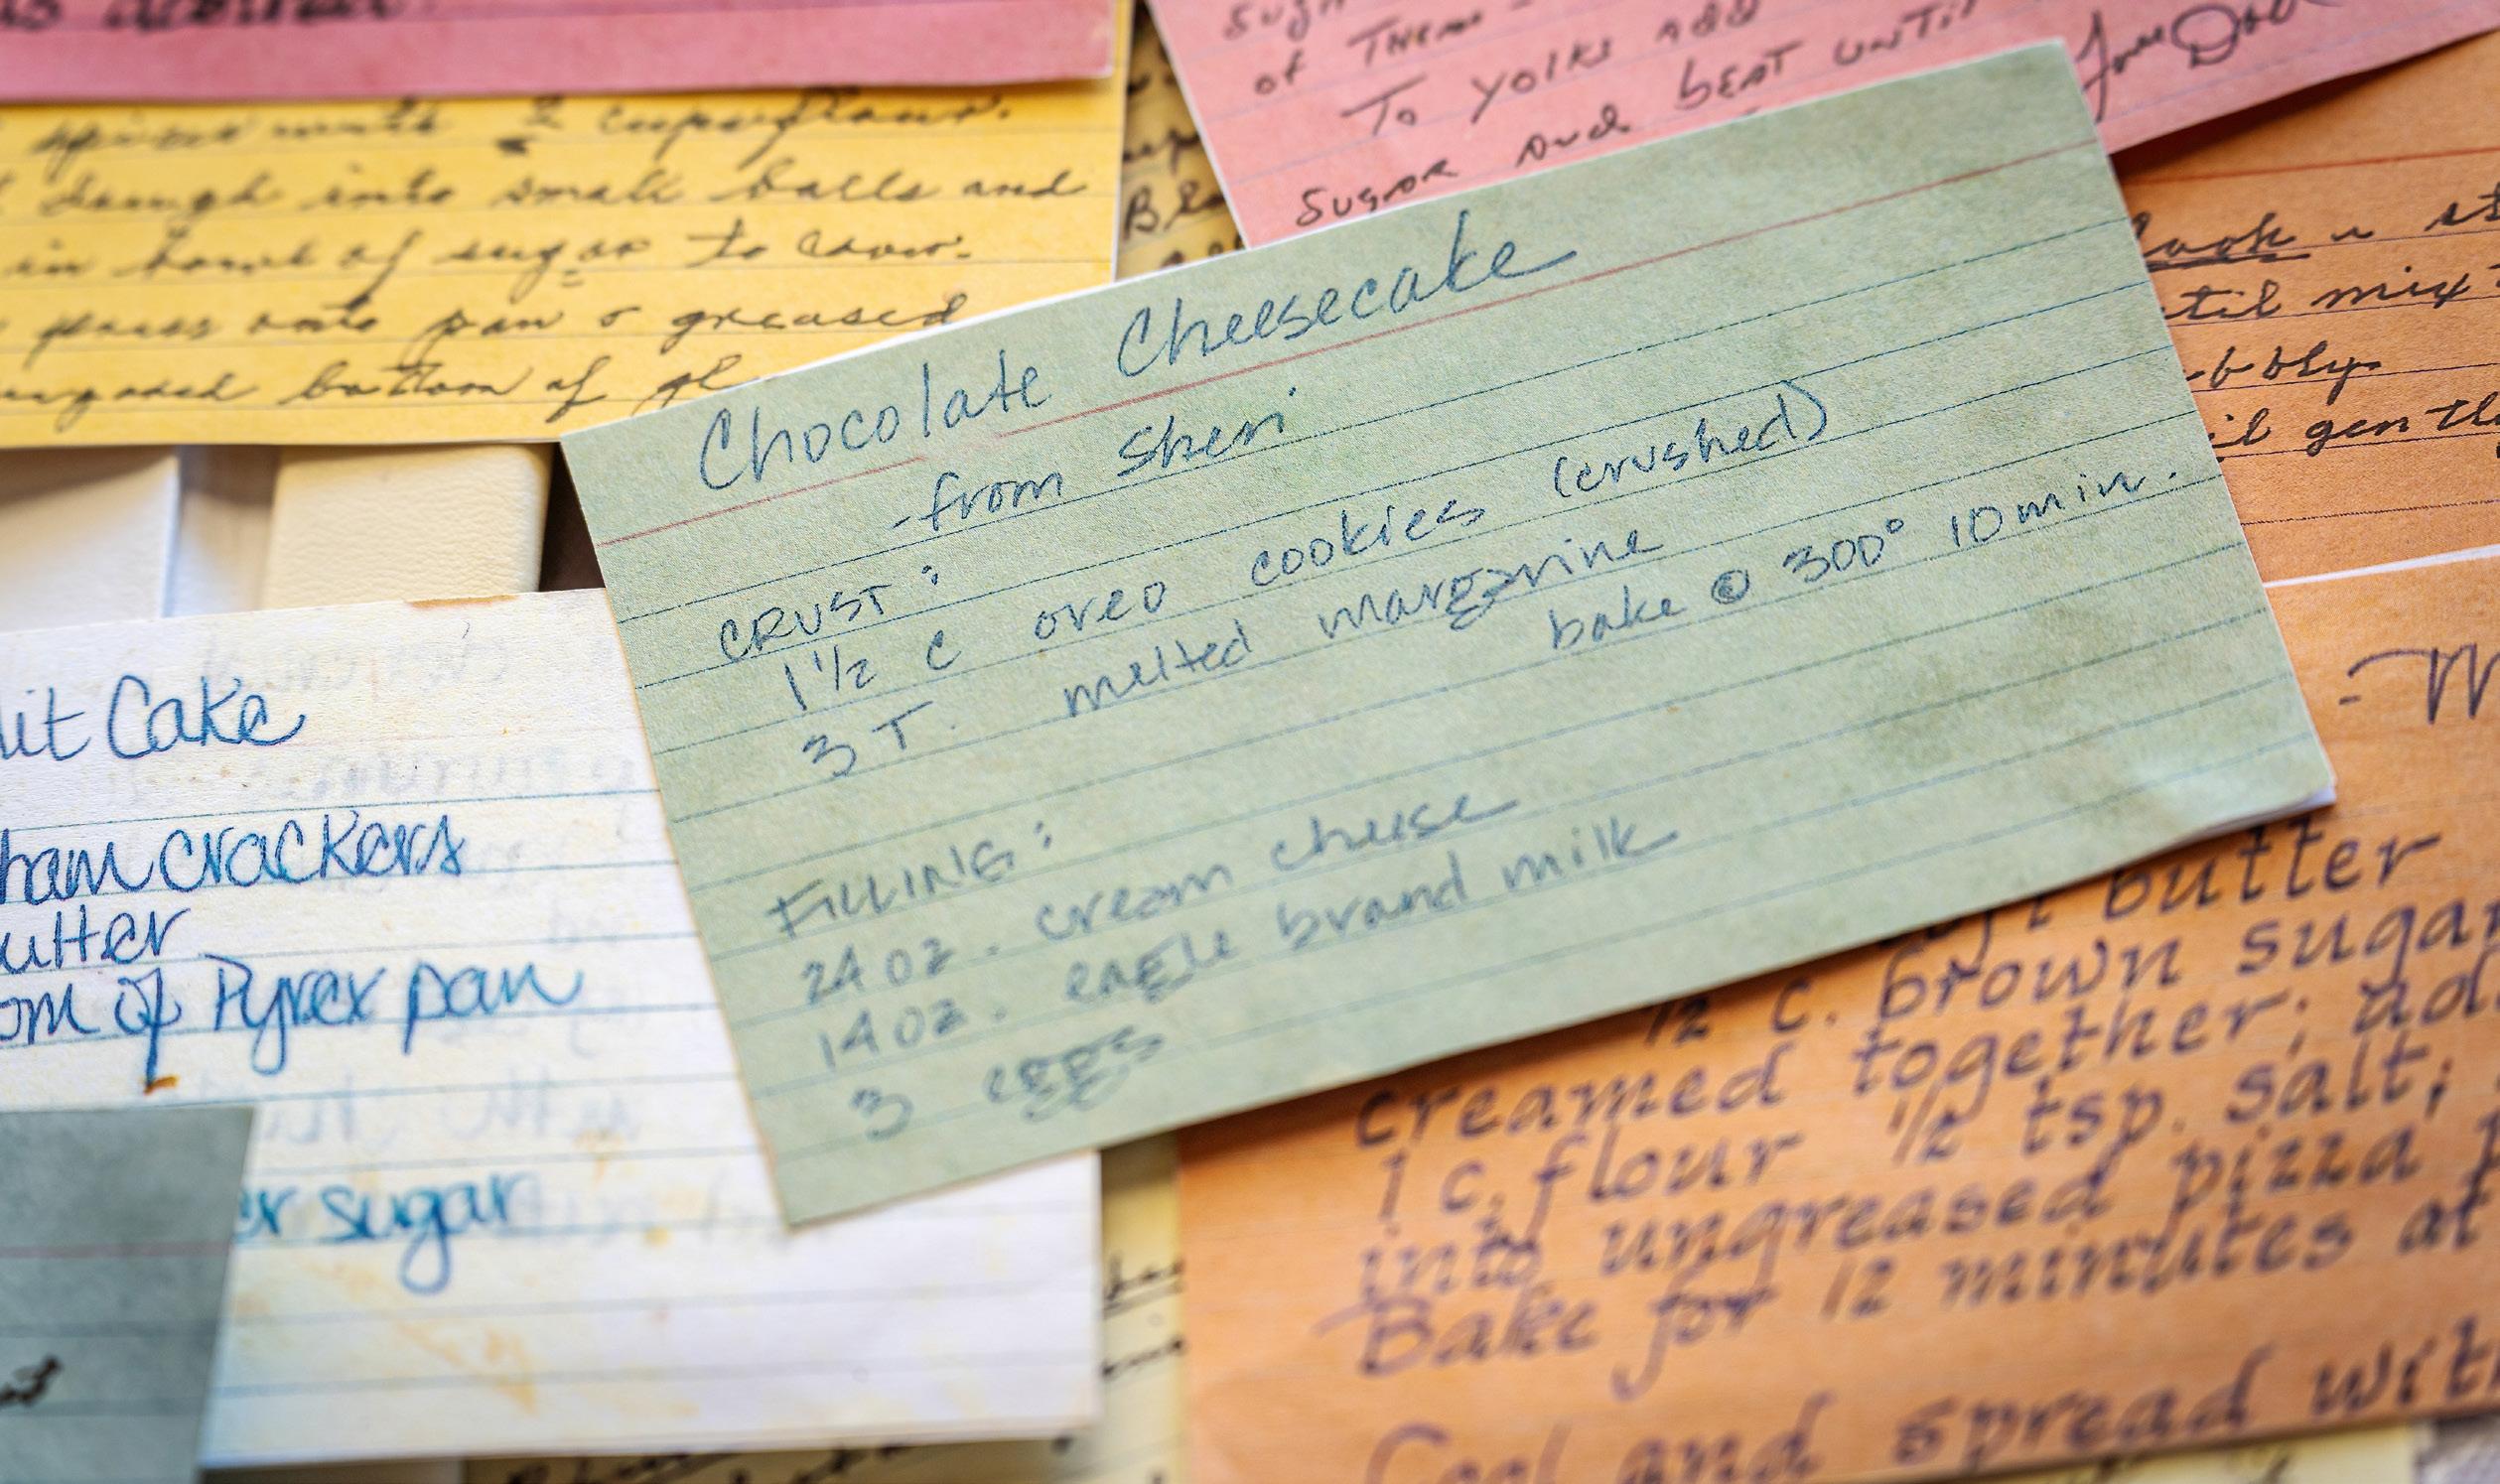 sugar
of THEM
TO YOLKS Add
SUGAR and bEAT UNTIL
2 cups flour.
dough into small balls and
in bowl of sugar to cover.
onto pan greased
bottom of gl
Chocolate Cheesecake
-from Sheri
CRUST:
1 1/2 C oreo cookies (crushed)
3 T. melted margarine
bake @ 300° 10 min.
FILLING:
24 oz. cream cheese
14 oz. eagle brand milk
3 eggs
til mix
bbly.
il gently
lit Cake
ham crackers
utter
om of Pyrex pan
er sugar
butter
1/2 c. brown sugar
creamed together; ad
1 c. flour 1/2 tsp. salt;
into ungreased pizza p
Bake for 12 minutes at
Cool and spread with